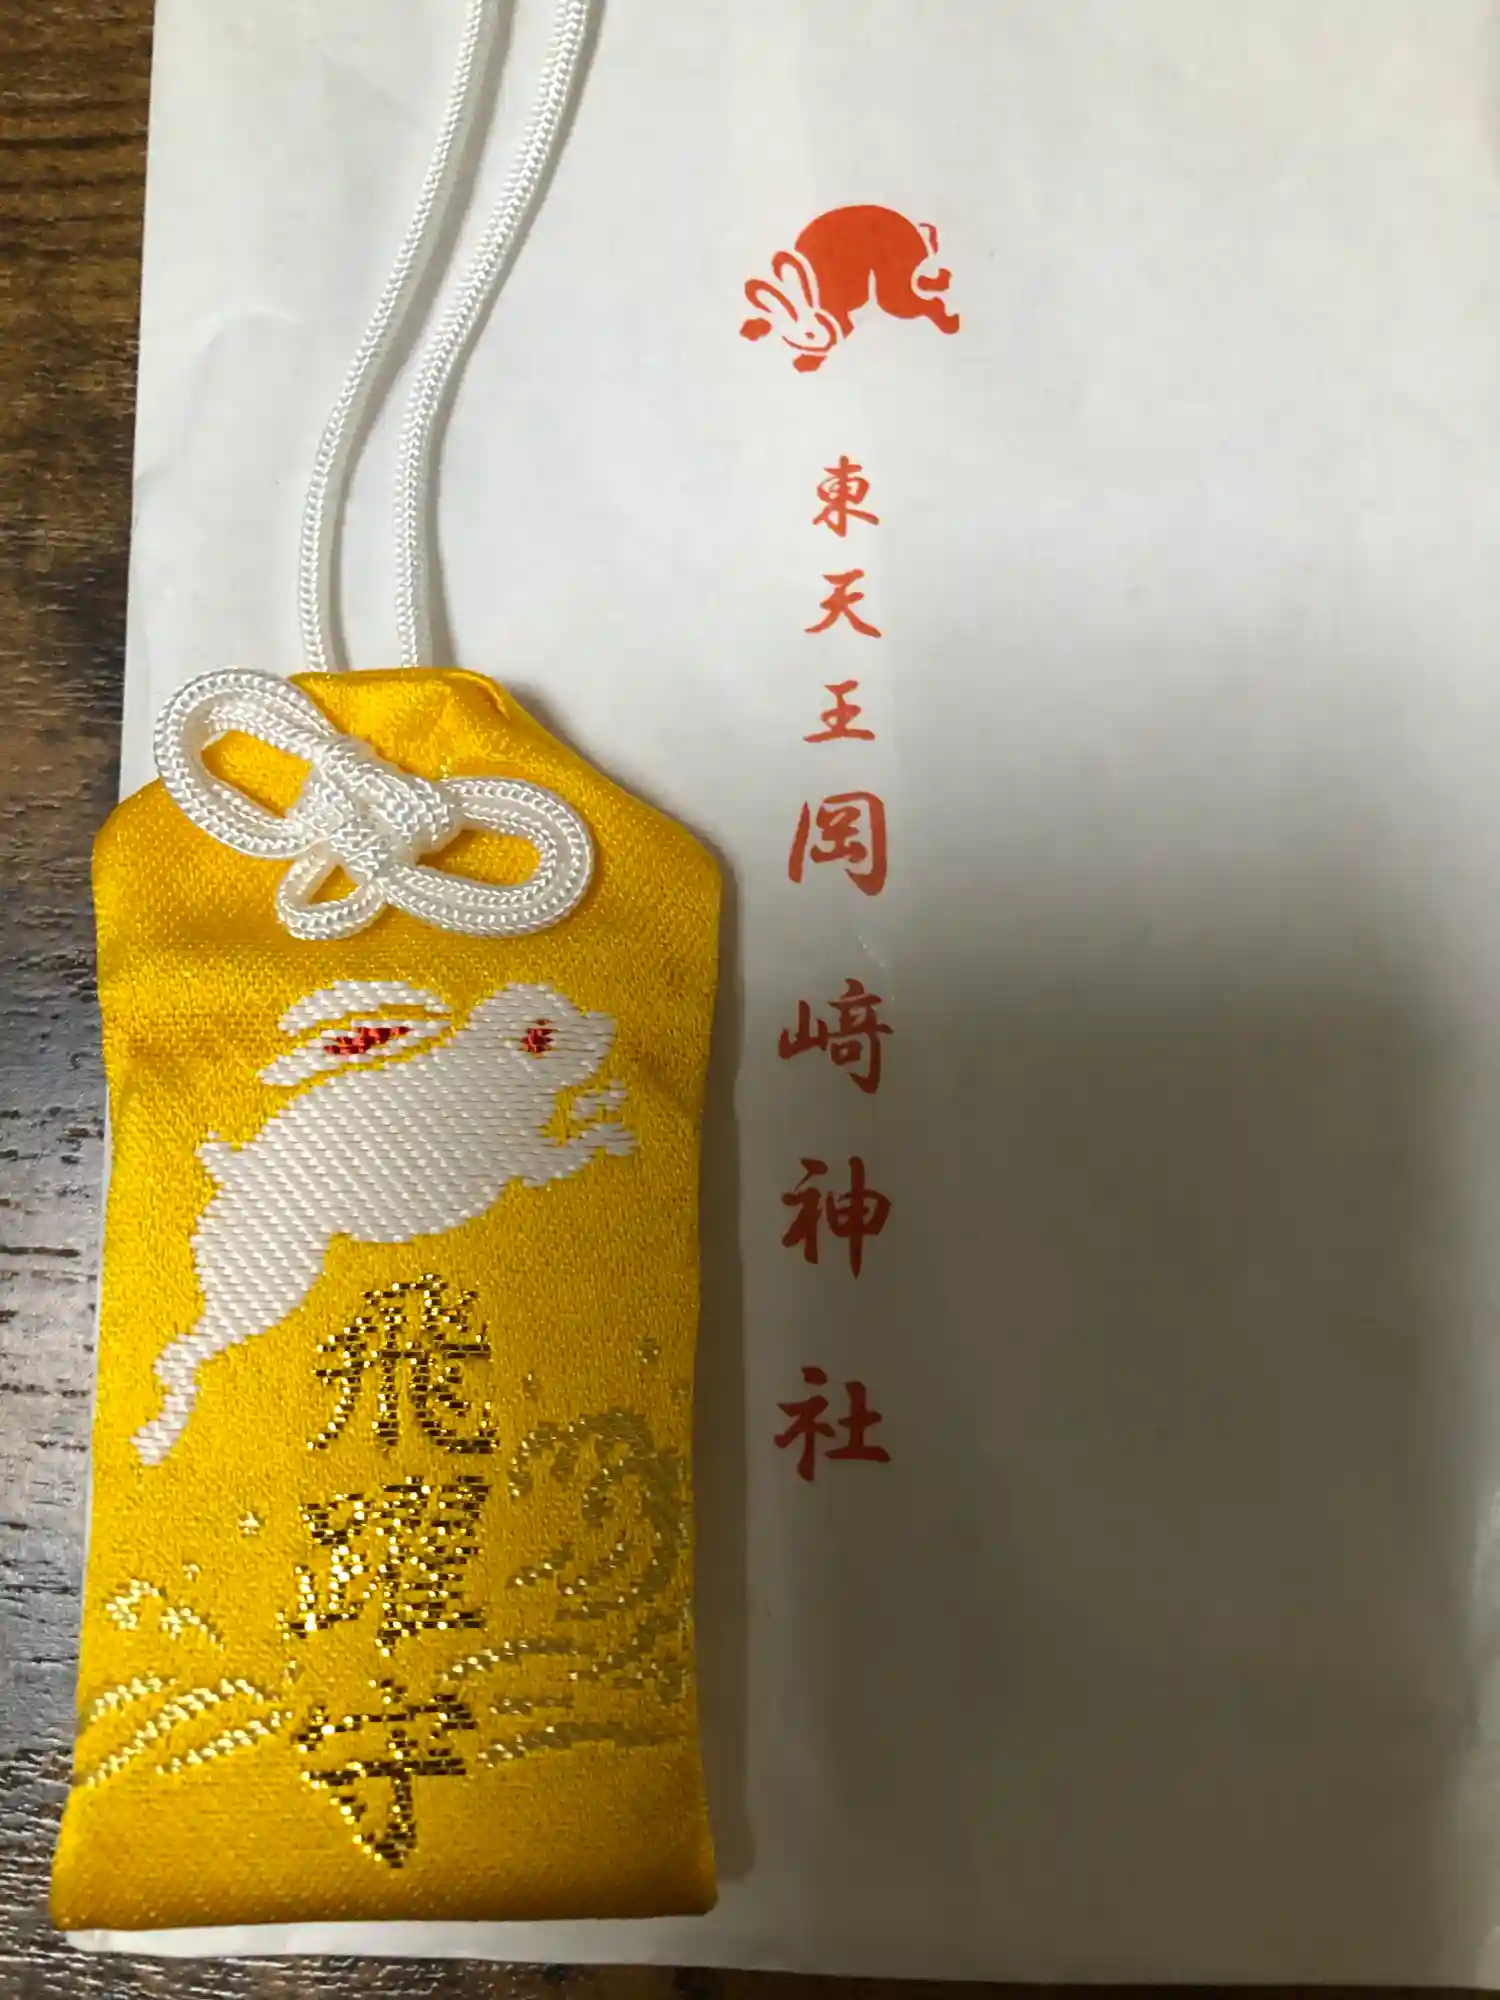 東天王岡﨑神社
飛躍守